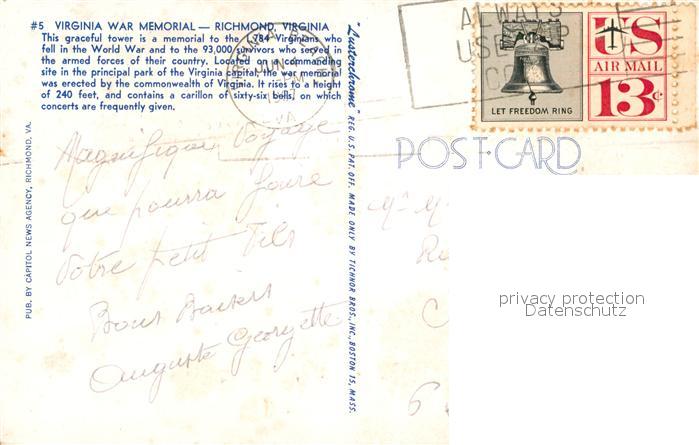 #5 VIRGINIA WAR MEMORIAL — RICHMOND, VIRGINIA
This graceful tower is a memorial to the 1,784 Virginians who
fell in the World War and to the 93,000 survivors who served in
the armed forces of their country. Located on a commanding
site in the principal park of the Virginia capital, the war memorial
was erected by the commonwealth of Virginia. It rises to a height
of 240 feet, and contains a carillon of sixty-six bells, on
which concerts are frequently given.
JUN
VA
PUB. BY CAPITOL NEWS AGENCY, RICHMOND, VA.
"Lusterchrome" REG. U.S. PAT. OFF. MADE ONLY BY TICHNOR BROS., INC., BOSTON 15, MASS.
ALWAYS
USE
LET FREEDOM RING
US
AIR MAIL
13c
POST CARD
Magnifique Voyage
que pourra faire
Votre petit Fils
Bons Baisers
Auguste Georgette
privacy protection
Datenschutz